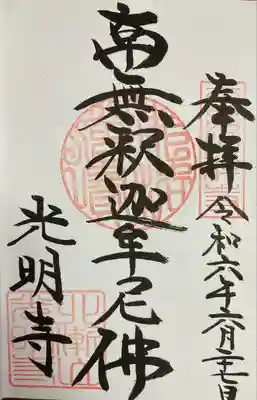 奉拝 令和六年六月二七日
南無釈迦牟尼佛
光明寺